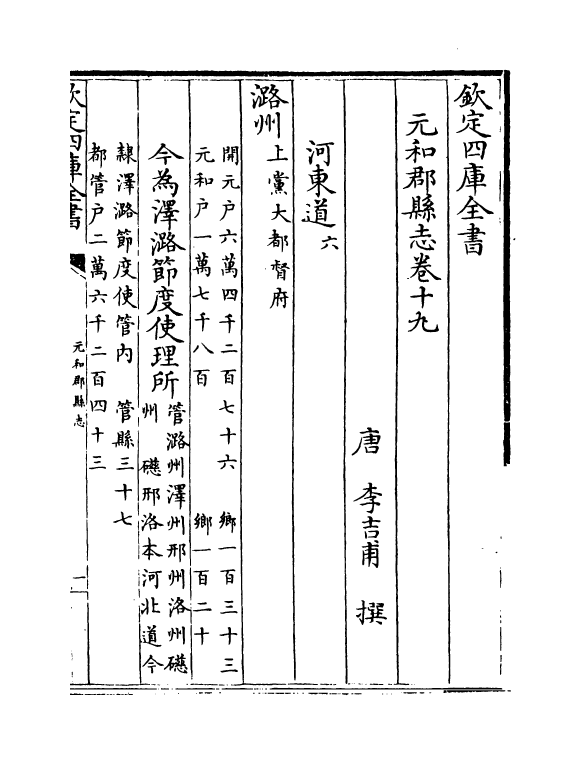 欽定四庫全書
元和郡縣志卷十九
唐 李吉甫 撰
河東道六
潞州上黨大都督府
開元户六萬四千二百七十六 鄉一百三十三
元和户一萬七千八百 鄉一百二十
今為澤潞節度使理所管潞州澤州邢州洺州礠
州 礠邢洺本河北道今
隸澤潞節度使管內 管縣三十七
都管户二萬六千二百四十三
欽定四庫全書
元和郡縣志
一